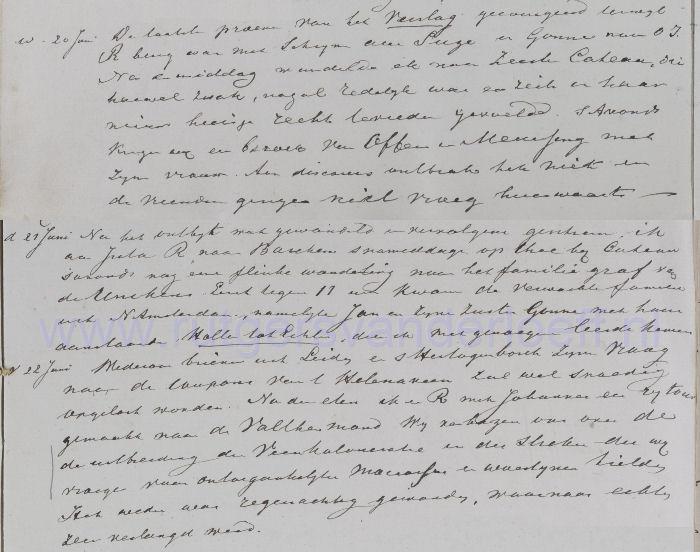 w. 20 Juni De laatste proeve van het Verslag gecorrigeerd terwijl
R bezig was met Schrijven aan en Gonne naar O I.
Na de middag wandelde ik naar Zeerb Cateau, die
hoewel zwak, nogal redelijk was en zich in haar
nieuw huisje recht tevreden gevoelde. S'Avonds
kregen wij een bezoek van Offen en Mensing met
zijn vrouw. Aan discours ontbrak het niet en
de vrienden gingen niet vroeg huiswaarts —
d 21 Juni Na het ontbijt wat gewandeld en vervolgens gescheen ik
aan Julia R, naar Barchem snamiddags op thee bij Cateau
savonds nog eene flinke wandeling naar het familie graf van
de Eerst tegen 11 uur kwam de verwachte familie
uit N Amsterdam, namelijk Jan en zijne Zuster Gonne met haar
aanstaande Holle die ik met genoegen leerde kennen
v 22 Juni Wederom brieven uit Leiden en s Hertogenbosch Zijn vraag
naar de coupons van t Helenaveen zal wel spoedig
opgelost worden. Na den eten ik en R met Johannes een rij tour
gemaakt naar de Valthermond Wij verbazen ons over de
de uitbreiding der Veenkoloniën in die streken die wij
vroeger van ontoegankelijke moerassen en woestijnen hielden
Het weder was regenachtig geworden, waarnaar echter
zeer verlangd werd.
www.rutgersvanderloeff.nl